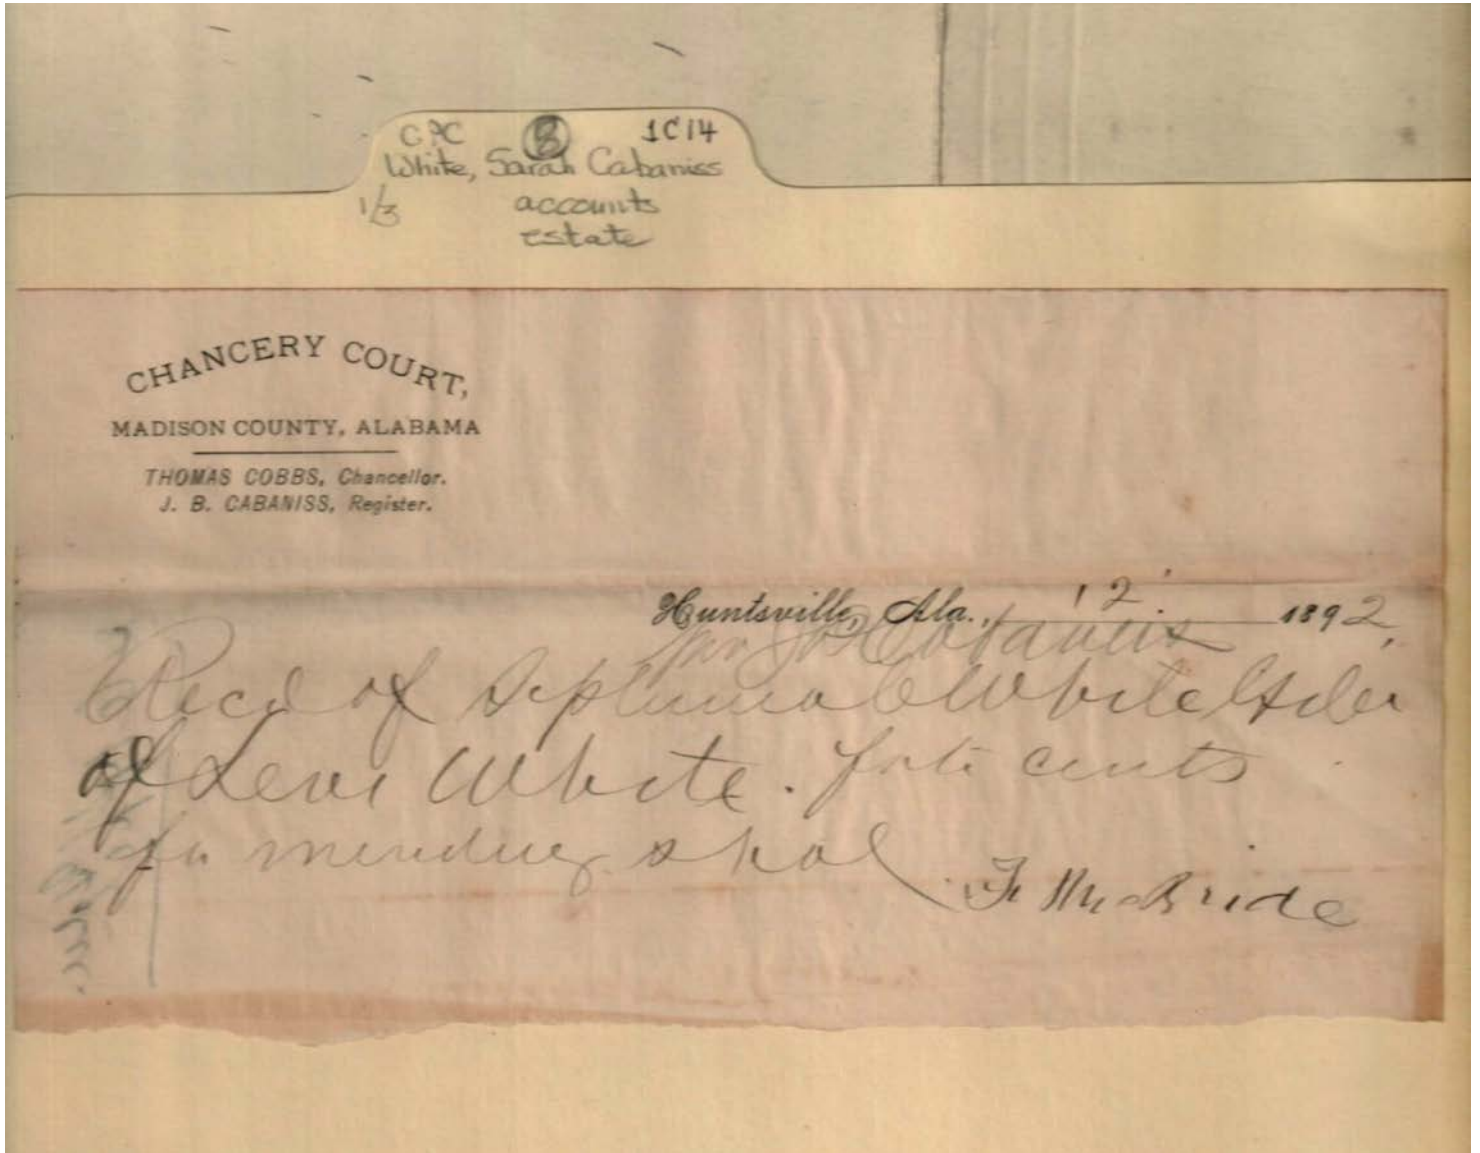 CPC 8 1C14
White, Sarah Cabaniss
1/3 accounts
estate
CHANCERY COURT,
MADISON COUNTY, ALABAMA
THOMAS COBBS, Chancellor.
J. B. CABANISS, Register.
Huntsville, Ala., 12. 1892
Cabaniss
Recd of Septimia C White
of Levi White. forti cents
for mending shol
McBride